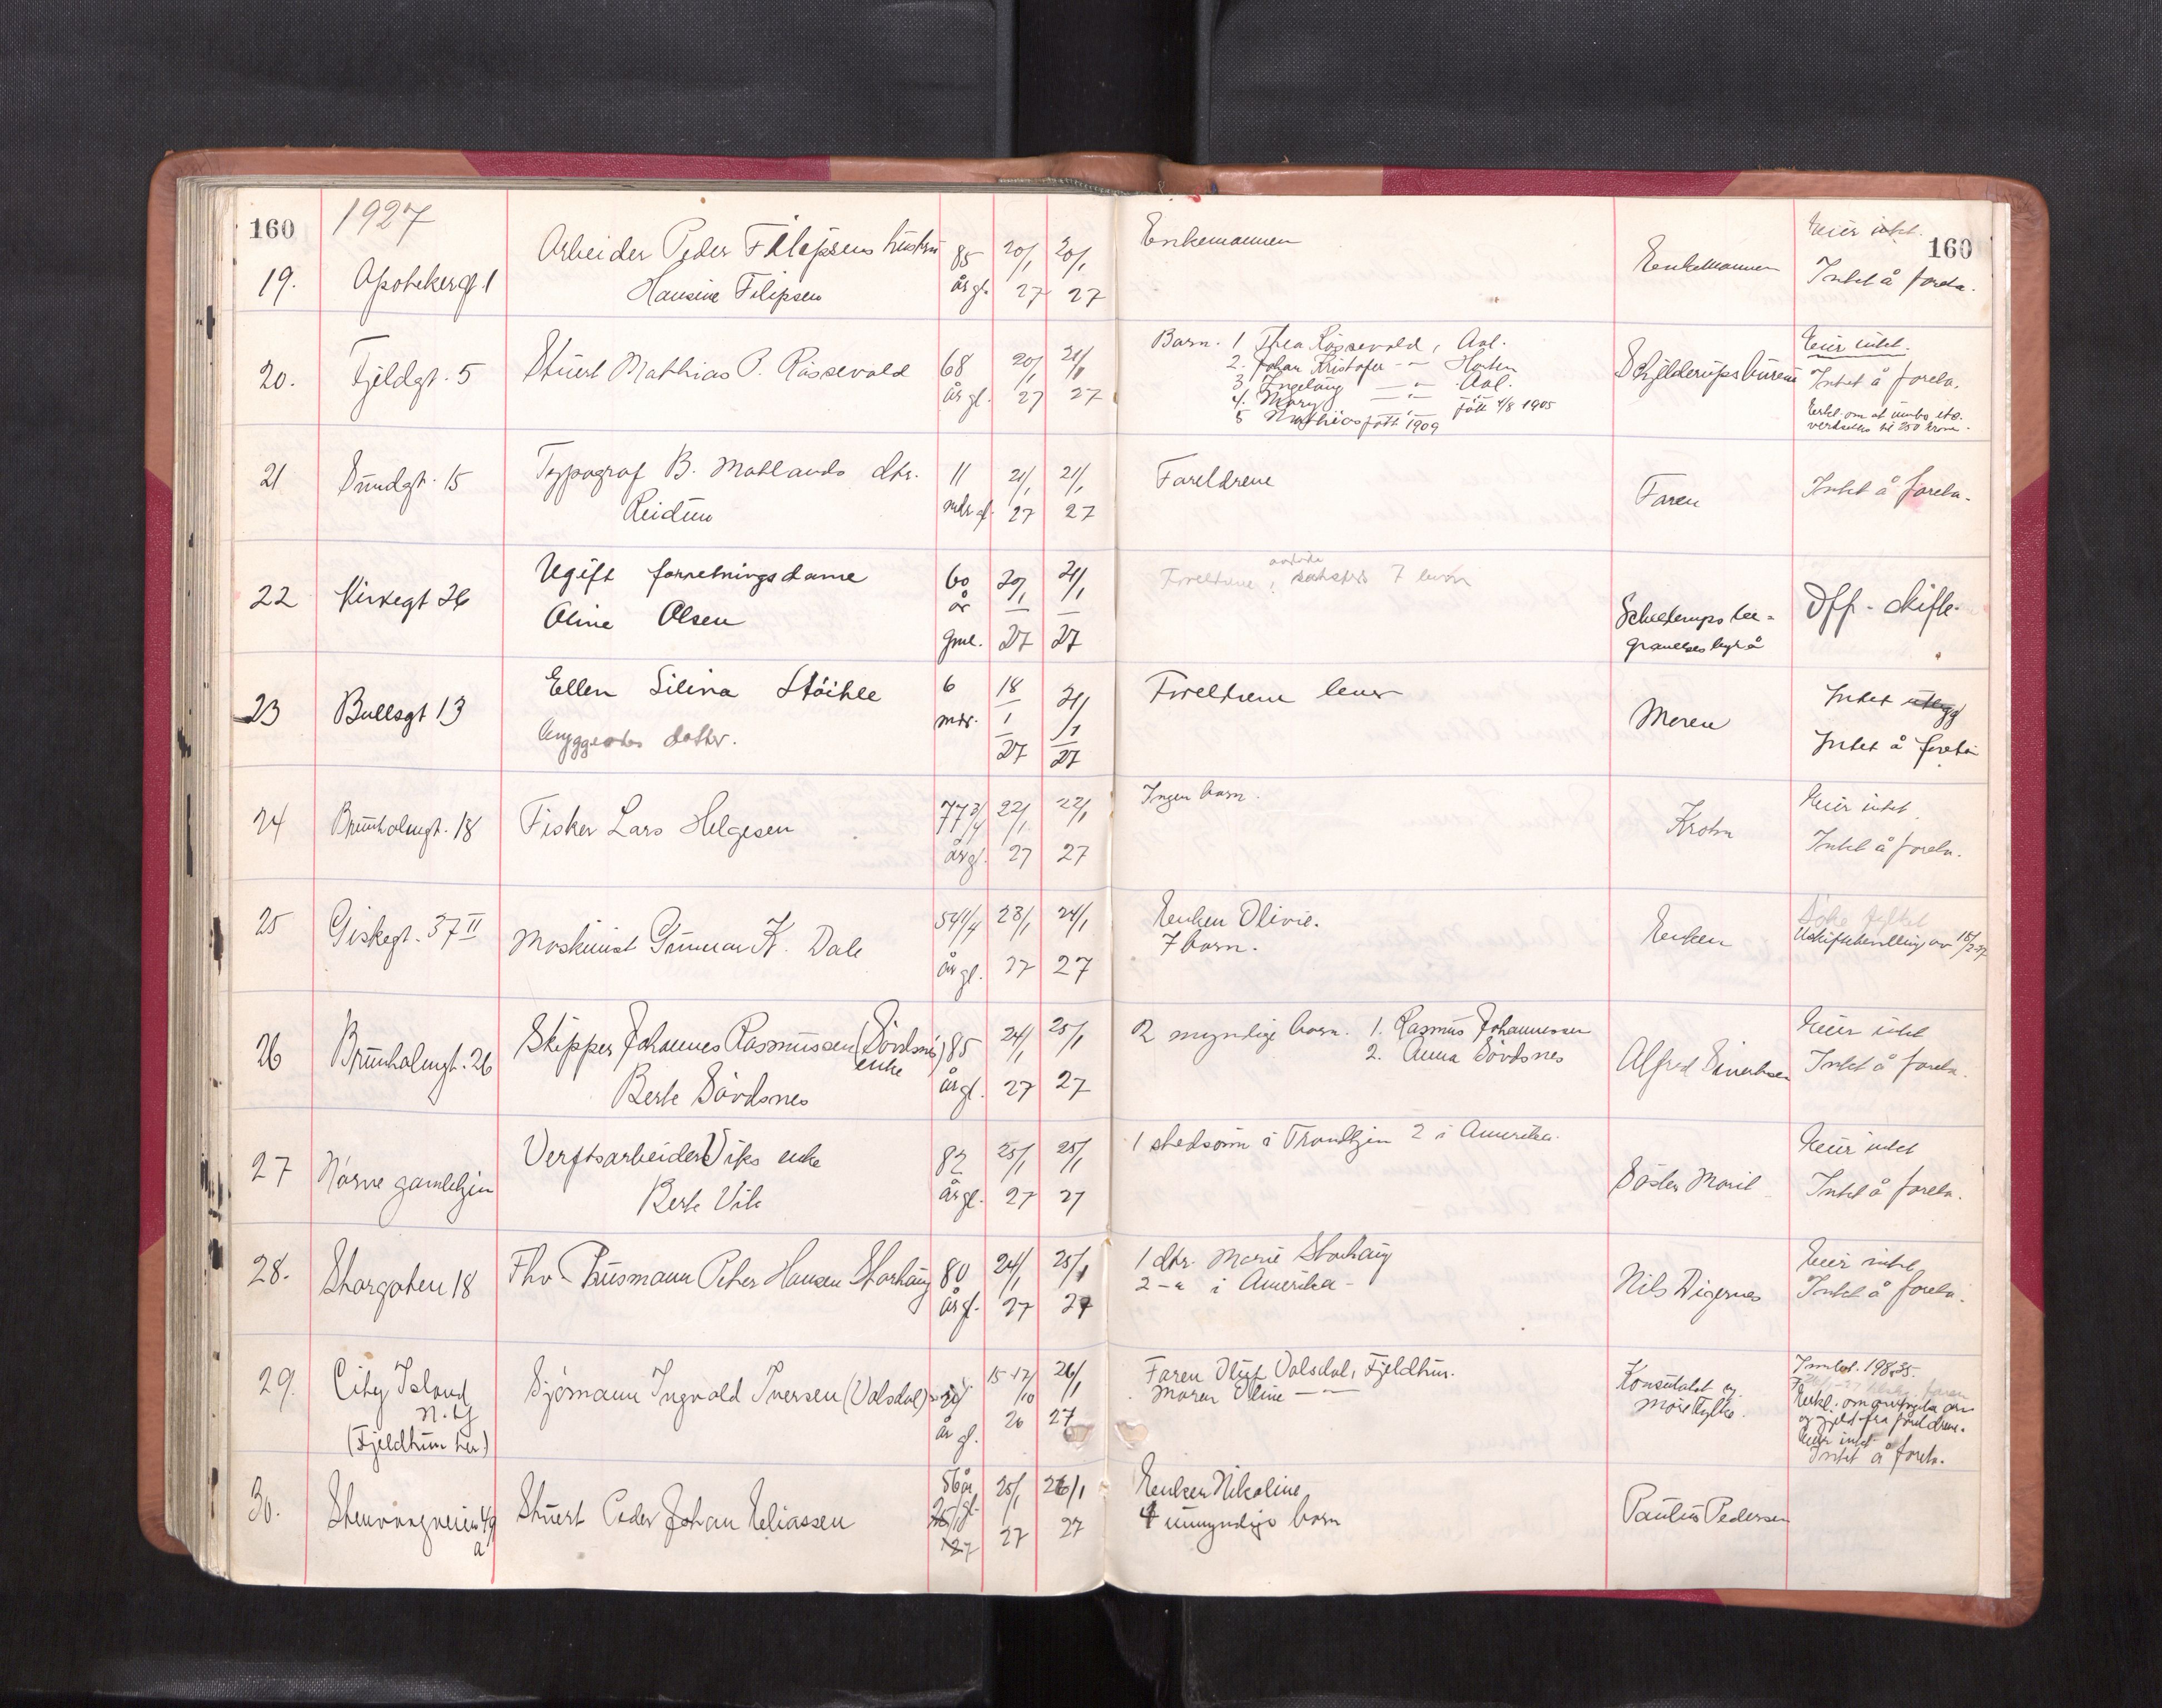 160
1927
160
19.
Apotekergt. 1
Arbeider Peder Filipsens hustru
Hansine Filipsen
85
år gl.
20/1
27
20/1
27
Enkemannen
Enkemannen
Eier intet.
Intet å foreta.
20.
Fjeldgt. 5
Stuert Mathias P. Røssevold
68
år gl.
20/1
27
21/1
27
Barn. 1 Thea Røssevold, Aal.
2. Johan Kristofer -"- Horten
3. Ingeborg -"- Aal.
4. Mary -"- født 4/8 1905
5 Mathias født 1909
Schjelderups bureau
Eier intet.
Intet å foreta.
Erkl. om at innbo etc.
verdsettes til 250 kroner.
21
Sundgt. 15
Typograf B. Matlands dtr.
Reidun
11
mdr gl.
21/1
27
21/1
27
Foreldrene
Faren
Intet å foreta.
22
Kirkegt 26
Ugift forretningsdame
Oline Olsen
60
år
gml.
20/1
27
21/1
27
Foreldrene
7 barn
byrå
Off. skifte.
23
Bullsgt 13
Ellen Silina Støihle
datter.
6
mdr.
18
1
27
21/1
27
Foreldrene lever
Moren
Intet utlegg
Intet å foreta
24
Brunholmgt. 18
Fisker Lars Helgesen
77 3/4
år gl.
22/1
27
22/1
27
Ingen barn.
Krohn
Eier intet.
Intet å foreta.
25
Giskegt. 37 II
Maskinist Gunnar K. Dale
54 1/4
år gl.
23/1
27
24/1
27
Enken Olivie.
7 barn.
Enken
Uskiftebevilling av 18/2-27
26
Brunholmgt. 26
Skipper Johannes Rasmussen (Søvdsnes)
enke
Berte Søvdsnes
85
år gl.
24/1
27
25/1
27
2 myndige barn. 1. Rasmus Johannessen
2. Anna Søvdsnes
Alfred Sivertsen
Eier intet
Intet å foreta.
27
Nørve gamlehjem
Verftsarbeider Viks enke
Berte Vik
82
år gl.
25/1
27
25/1
27
1 stedsønn i Trondhjem 2 i Amerika.
Søster Marit
Eier intet
Intet å foreta.
28.
Storgaten 18
Fhv. Husmann Peter Hansen Storhaug
80
år gl.
24/1
27
25/1
27
1 dtr. Marie Storhaug
2 -"- i Amerika -
Nils Digernes
Eier intet
Intet å foreta.
29.
City Island
N.Y
(Fjeldheim her)
Sjømann Ingvald Iversen (Valsdal)
år gl.
15-17/10
26
26/1
27
Faren Oluf Valsdal, Fjeldheim.
Moren Oline -"-
Konsulatet og
Møre Fylke.
Innbet. 198.35.
Erkl. om
og gjeld fra foreldrene.
Eier intet
Intet å foreta.
30.
Stenvaagveien 49
a
Stuert Peder Johan Eliassen
56 år
gl.
25/1
27
26/1
27
Enken Nikoline
4 umyndige barn
Paulus Pedersen